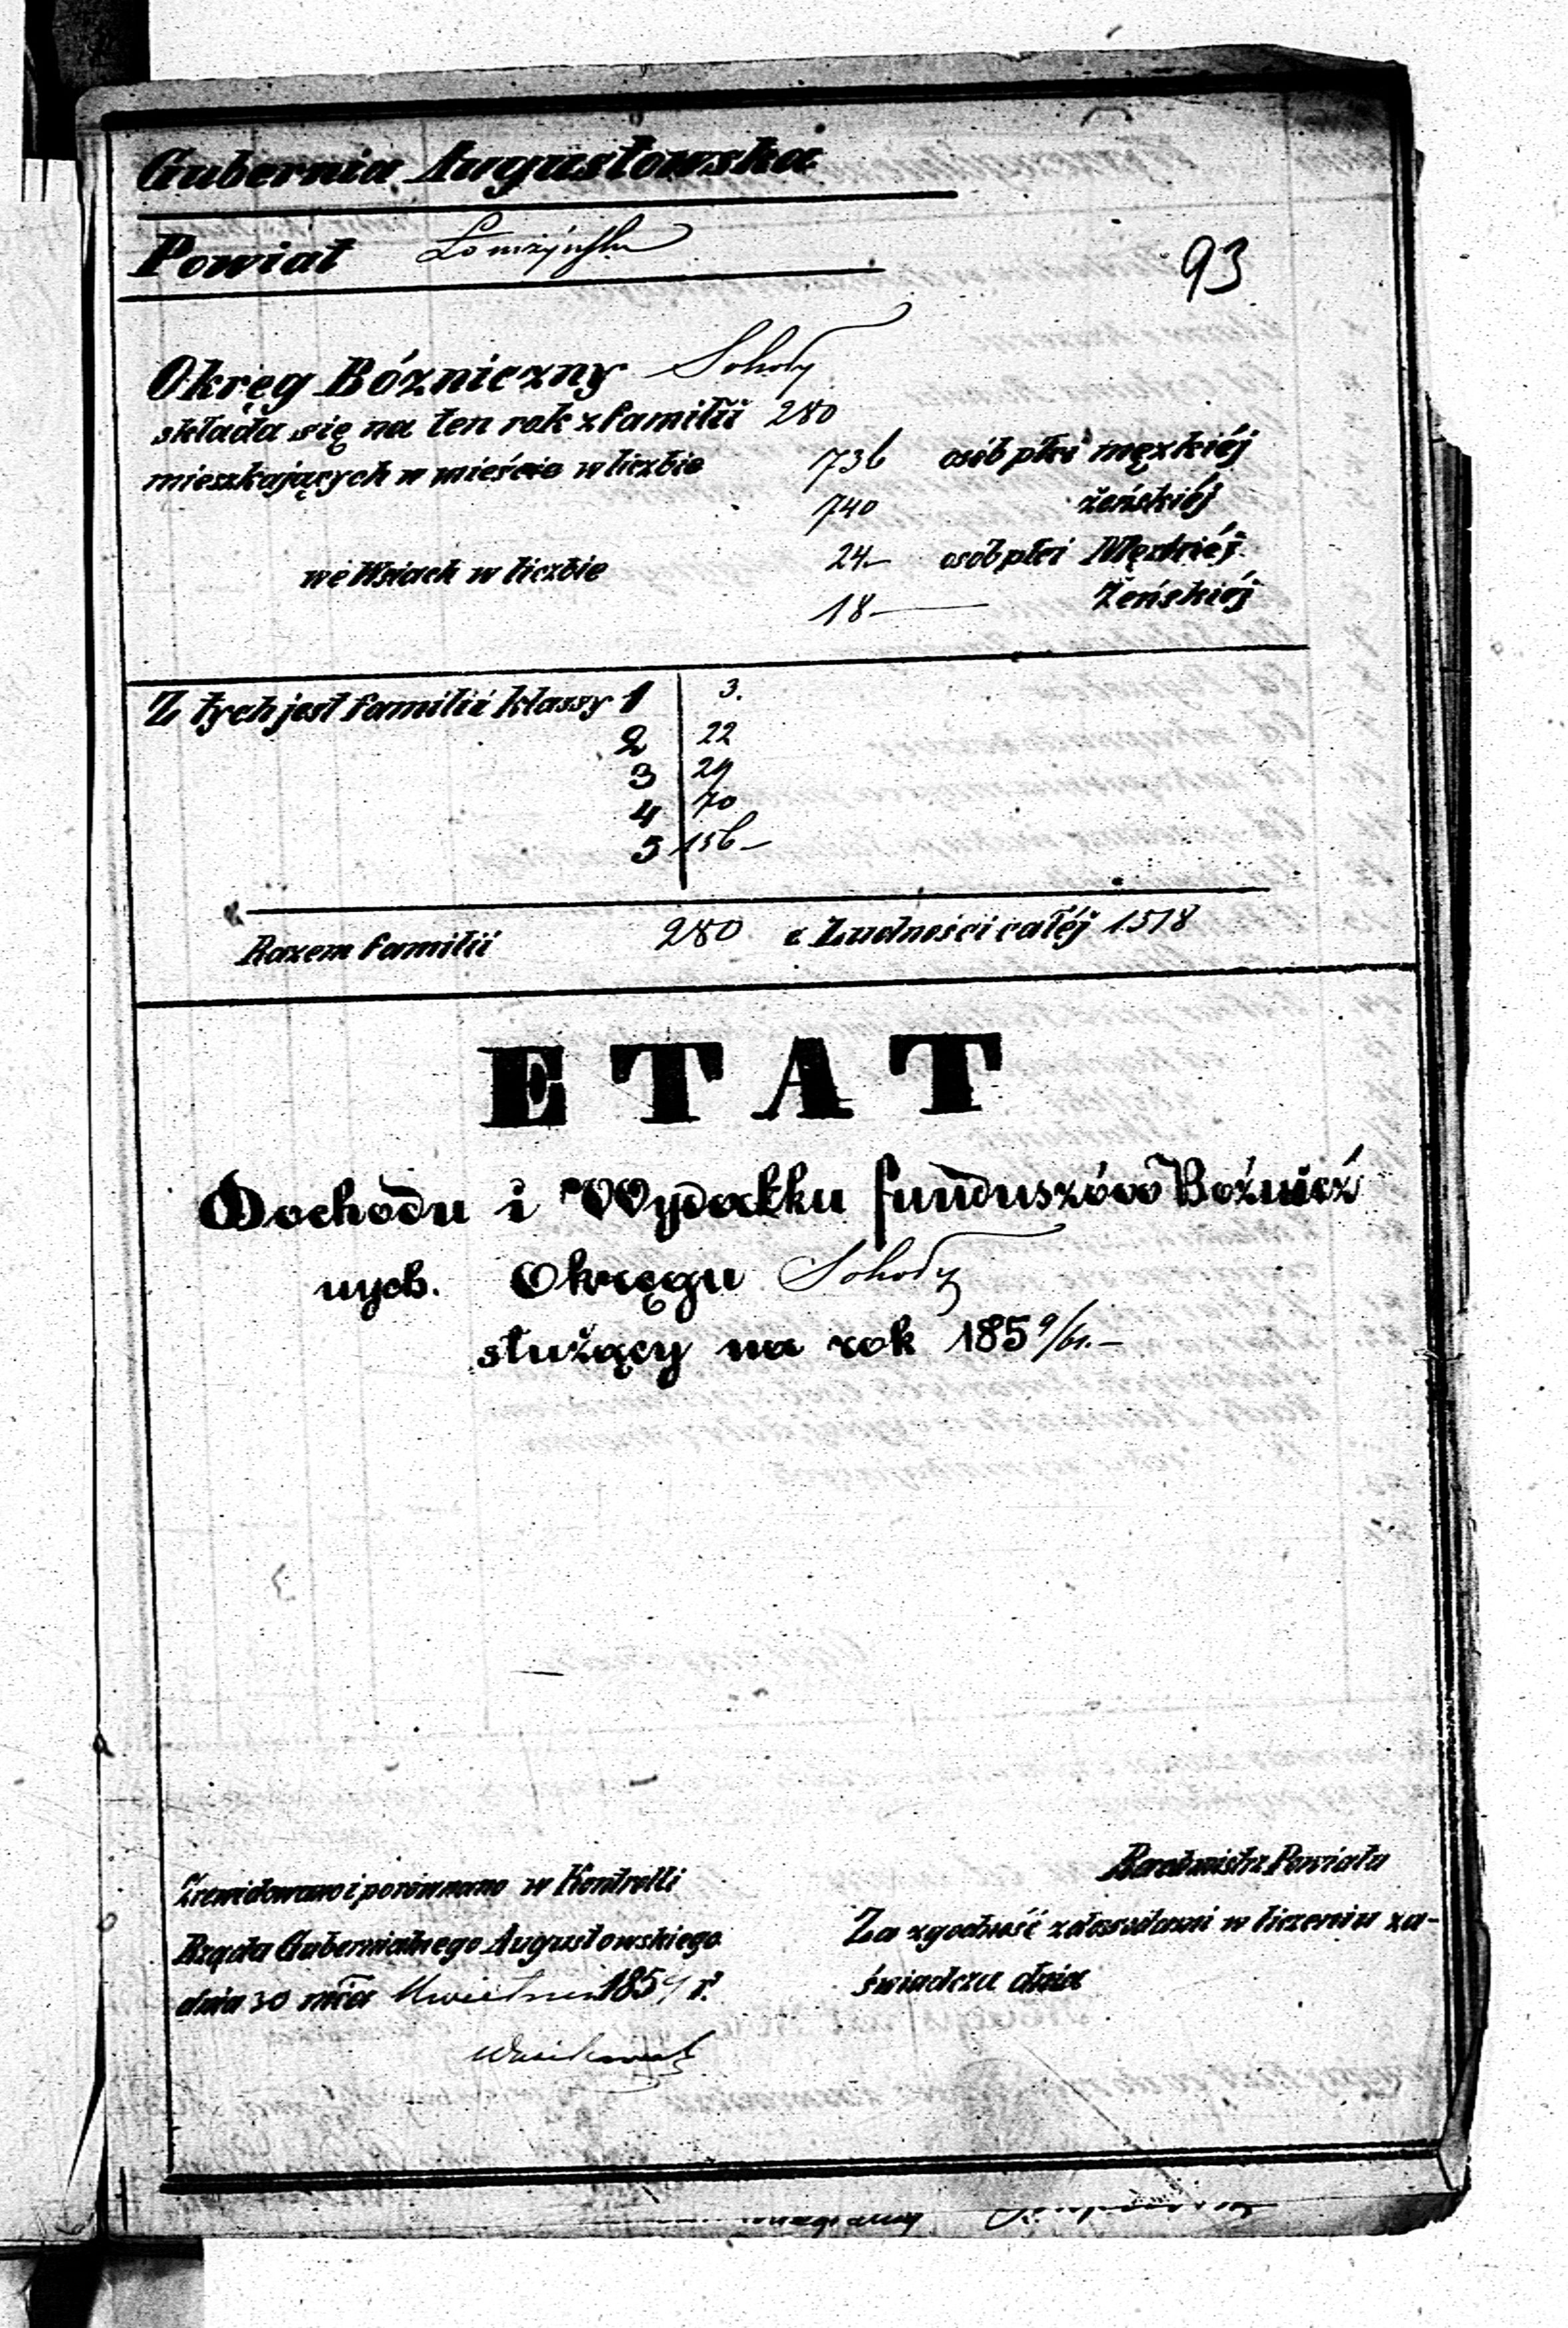 Gubernia Augustowska
Powiat Łomżyński
93
Okręg Bózniczny Sokoły
składa się na ten rok z familii 280
mieszkających w mieście w liczbie 736 osób płci męzkiéj
740 żeńskiéj
we Wsiach w liczbie 24 osób płci Męzkiéj
18 Żeńskiéj
Z tych jest familii klassy 1 3.
2 22
3 29
4 70
5 156
Razem familii 280 z Ludności całéj 1518
ETAT
Dochodu i Wydatku funduszów Boźnicz
nych. Okręgu Sokoły
służący na rok 1859/61.
Zrewidowano i porównano w Kontrolli
Rządu Gubernialnego Augustowskiego
dnia 30 mca Kwietnia 1859 r.
Rachmistrz Powiatu
Za zgodność z dowodami w liczeniu za-
świadcza dnia